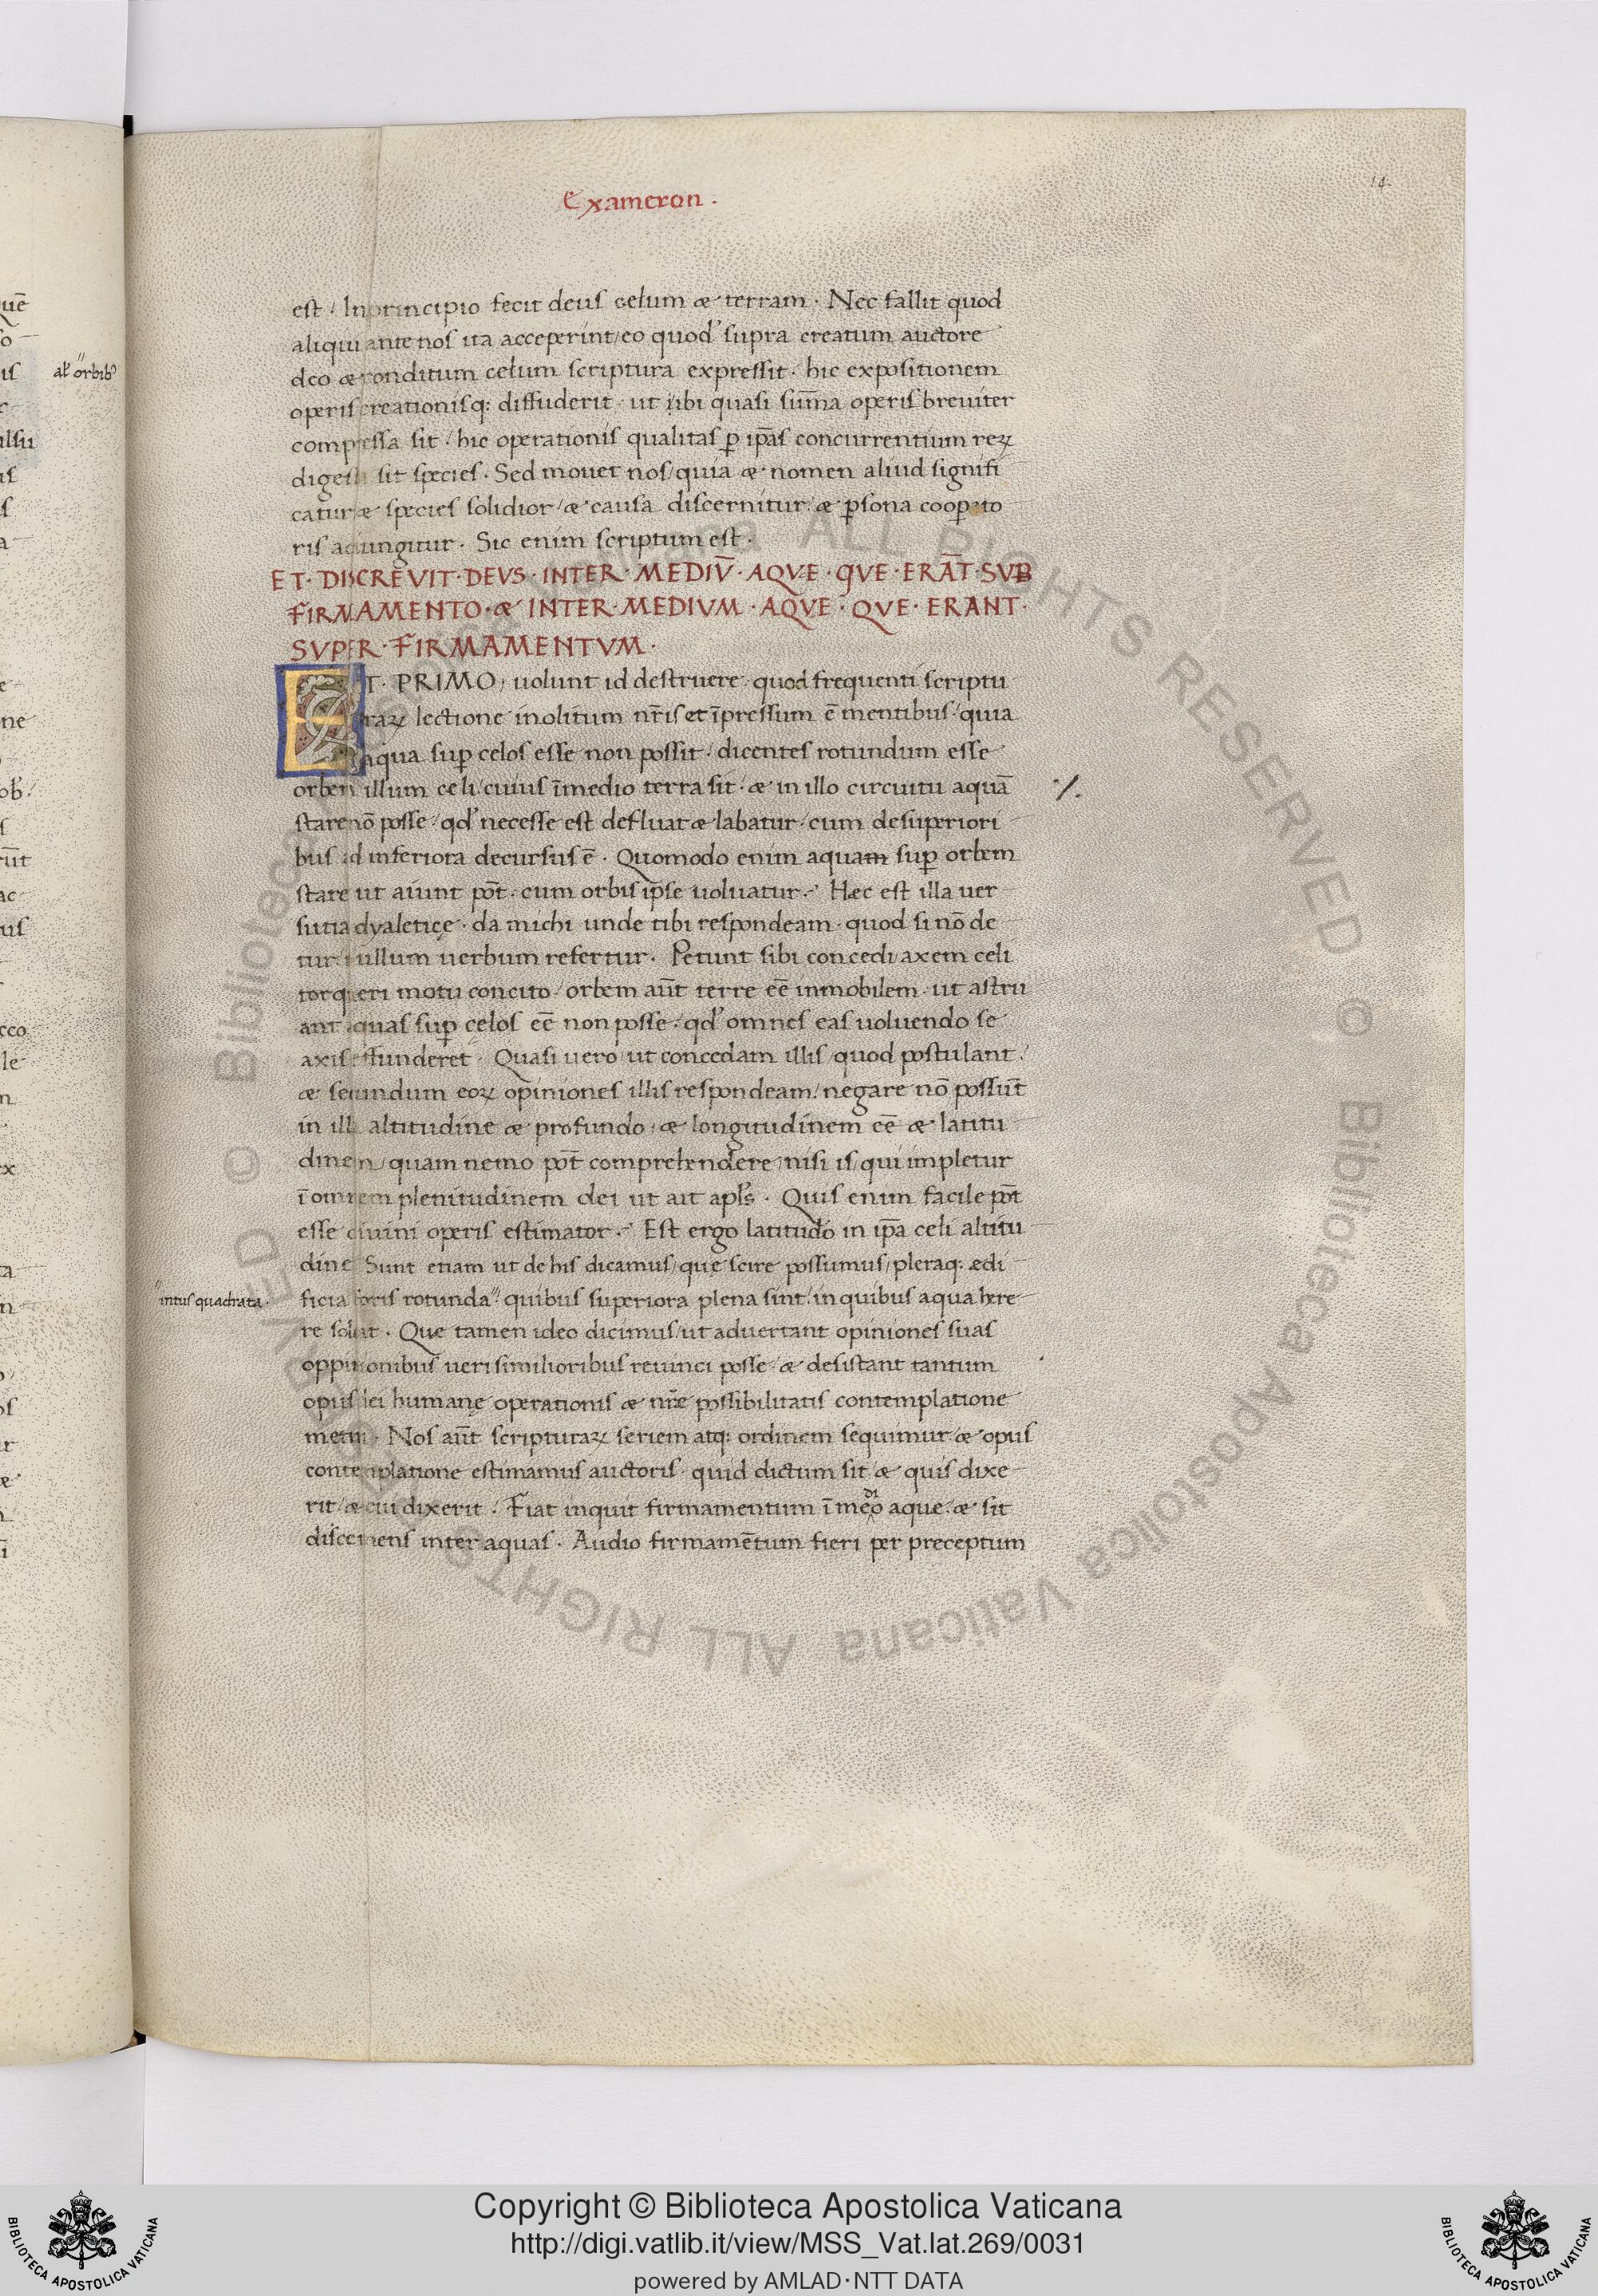 14
Exameron.
est. In principio fecit deus celum æ terram. Nec fallit quod
aliqui ante nos ita acceperint/ eo quod supra creatum auctore
deo æ conditum celum scriptura expressit. hic expositionem
operis creationisq: diffuderit. ut ubi quasi sum̅a operis breviter
compressa sit. hic operationis qualitas p̱ ip̅as concurrentium reꝝ
digesta sit species. Sed mouet nos/ quia æ nomen aliud signifi
catur æ species solidior/ æ causa discernitur. æ p̱sona coop̱ato
ris adiungitur. Sic enim scriptum est.
ET. DISCREVIT. DEVS. INTER. MEDIV̅. AQVE. QVE. ERA̅T. SVB
FIRMAMENTO. Æ INTER. MEDIVM. AQVE. QVE. ERANT.
SVPER. FIRMAMENTVM.
ET. PRIMO, uolunt id destruere. quod frequenti scriptu
raꝝ lectione inolitum nr̅is et i̅pressum e̅ mentibus/ quia
aqua sup̱ celos esse non possit. dicentes rotundum esse
orbem illum celi/ cuius i̅medio terra sit. æ in illo circuitu aqua̅
stare no̅ posse. qd' necesse est defluat æ labatur. cum de superiori
bus ad inferiora decursus e̅. Quomodo enim aquam sup̱ orbem
stare ut aiunt po̅t. cum orbis ip̅se uoluatur. Hæc est illa uer
sutia dyaleticę. da michi unde tibi respondeam. quod si no̅ de
tur. nullum uerbum refertur. Petunt sibi concedi/ axem celi
torqueri motu concito. orbem au̅t terre ee̅ inmobilem. ut astru
ant aquas sup̱ celos ee̅ non posse. qd' omnes eas uoluendo se
axis effunderet. Quasi uero/ ut concedam illis/ quod postulant.
æ secundum eoꝝ opiniones illis respondeam. negare no̅ possu̅t
in illa altitudine æ profundo. æ longitudinem ee̅ æ latitu
dinem/ quam nemo po̅t comprehendere/ nisi is/ qui impletur
i̅ omnem plenitudinem dei ut ait apl's. Quis enim facile po̅t
esse diuini operis estimator. Est ergo latitudo in ip̅a celi altitu
dine Sunt etiam ut de his dicamus/ quę scire possumus/ pleraq: ædi
intus quadrata.
ficia foris rotunda. quibus superiora plena sint. in quibus aqua here
re solet. Que tamen ideo dicimus/ ut aduertant opiniones suas
oppinionibus ueri similioribus reuinci posse. æ desistant tantum
opus dei humanę operationis æ nr̅e possibilitatis contemplatione
metiri. Nos au̅t scripturaꝝ seriem atq: ordinem sequimur. æ opus
contemplatione estimamus auctoris. quid dictum sit. æ quis dixe
rit/ æ cui dixerit. Fiat inquit firmamentum i̅ medio aque. æ sit
discernens inter aquas. Audio firmame̅tum fieri per preceptum
al' orbib'
Copyright © Biblioteca Apostolica Vaticana
http://digi.vatlib.it/view/MSS_Vat.lat.269/0031
powered by AMLAD·NTT DATA
BIBLIOTECA APOSTOLICA VATICANA
BIBLIOTECA APOSTOLICA VATICANA
© Biblioteca Apostolica Vaticana ALL RIGHTS RESERVED © Biblioteca Apostolica Vaticana ALL RIGHTS RESERVED